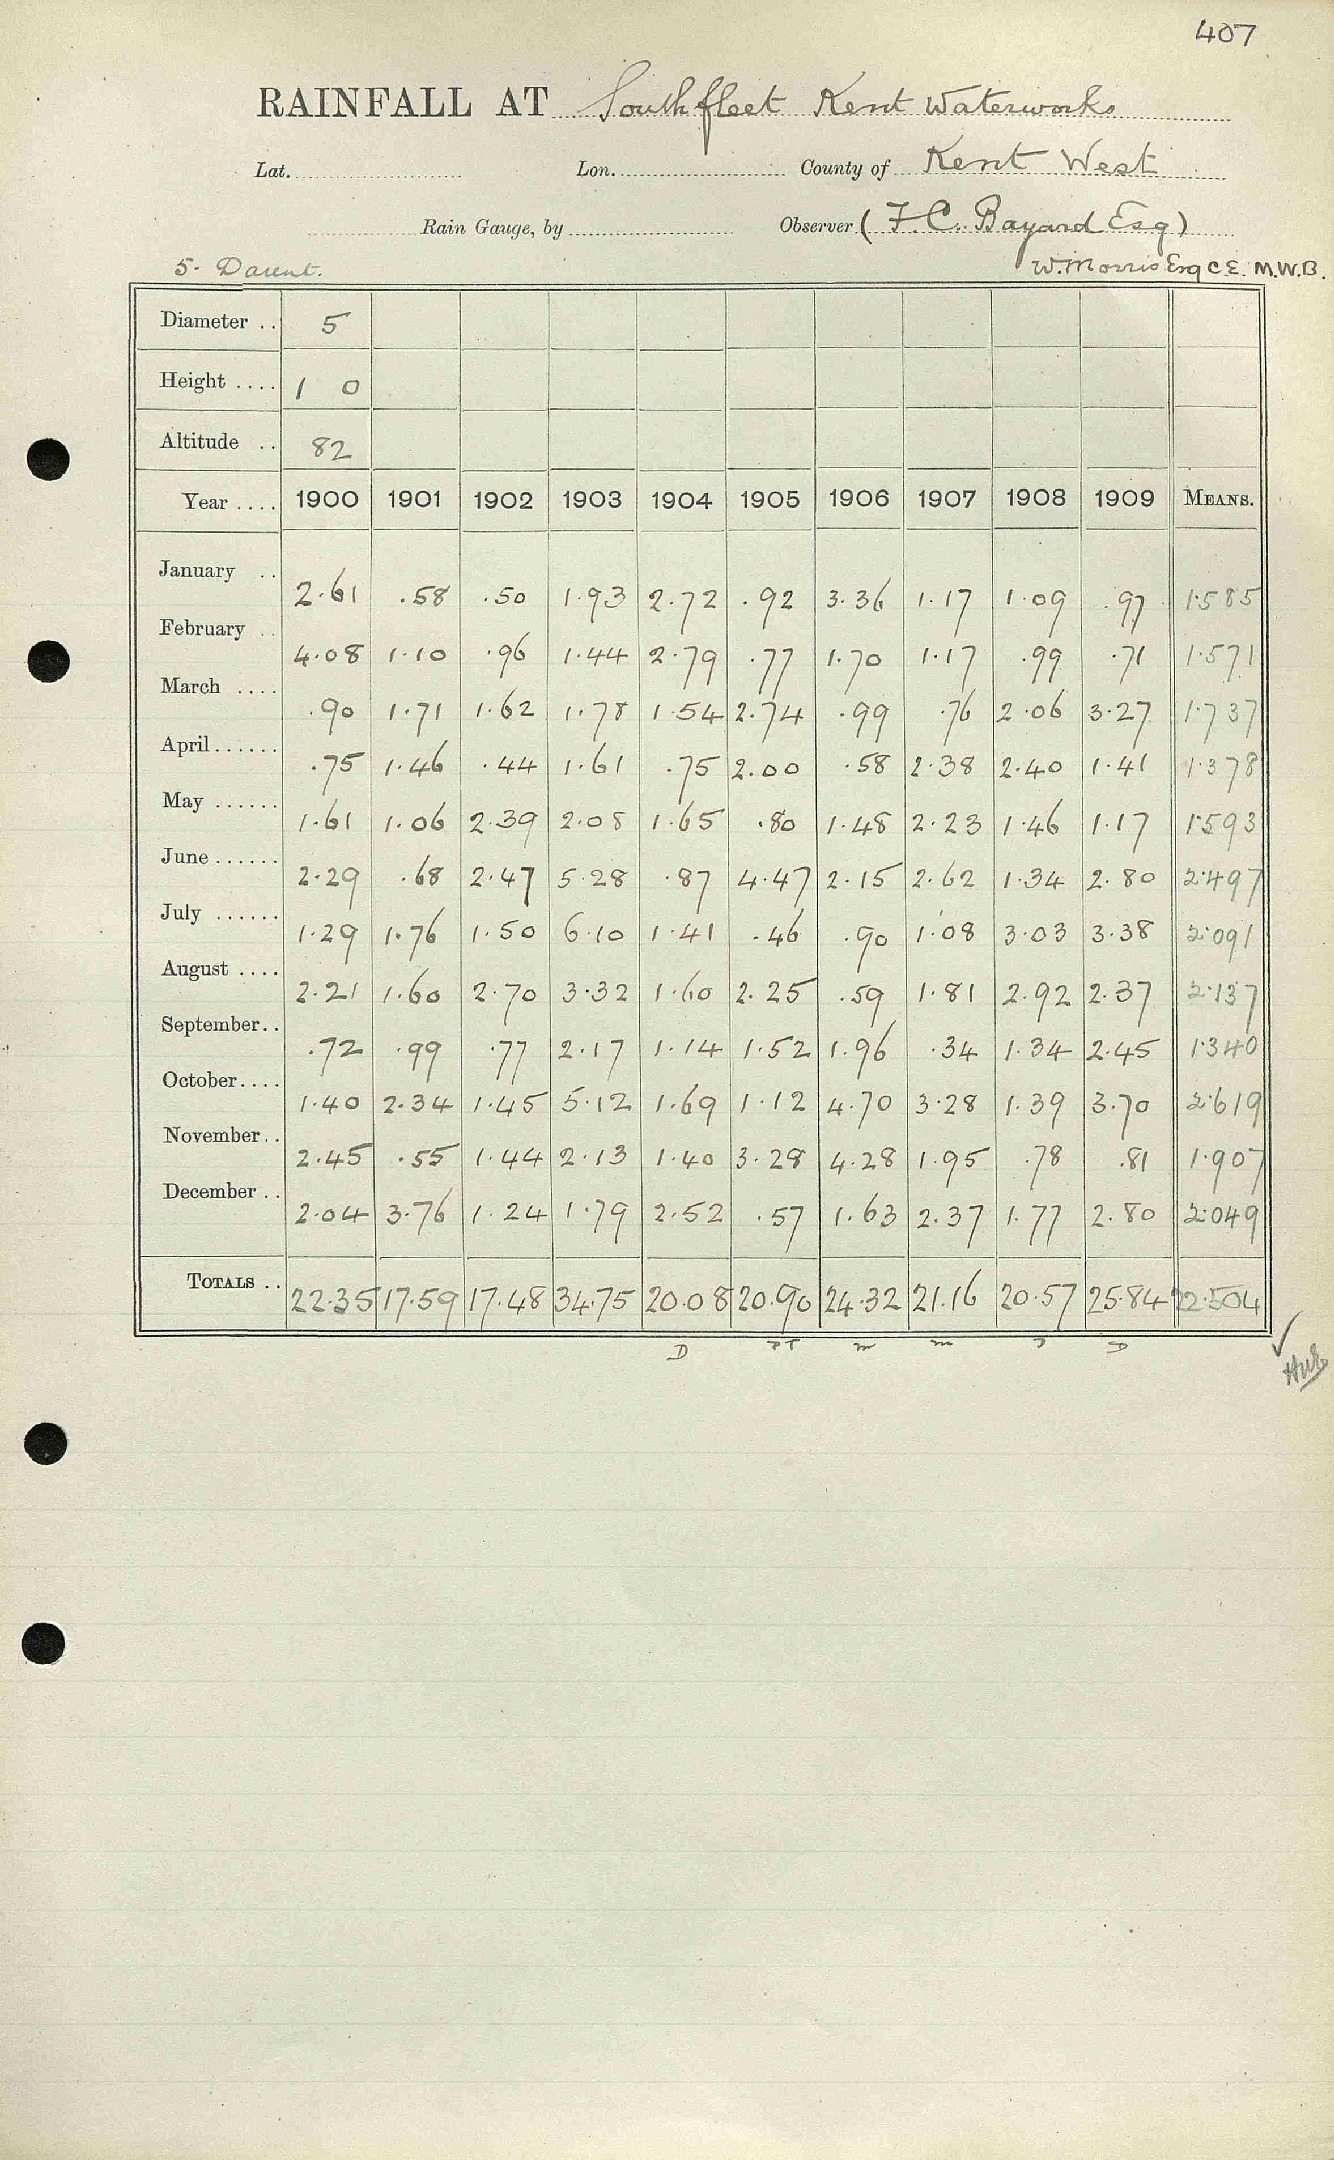 407
RAINFALL AT Southfleet Kent Waterworks
Lat. Lon. County of Kent West
Rain Gauge, by Observer (F. C. Bayard Esq)
5. Darent. W. Morris Esq C.E. M.W.B.
Diameter .. 5
Height .... 1 0
Altitude .. 82
Year .... 1900 1901 1902 1903 1904 1905 1906 1907 1908 1909 MEANS.
January .. 2.61 .58 .50 1.93 2.72 .92 3.36 1.17 1.09 .97 1.585
February .. 4.08 1.10 .96 1.44 2.79 .77 1.70 1.17 .99 .71 1.571
March .... .90 1.71 1.62 1.78 1.54 2.74 .99 .76 2.06 3.27 1.737
April...... .75 1.46 .44 1.61 .75 2.00 .58 2.38 2.40 1.41 1.378
May ...... 1.61 1.06 2.39 2.08 1.65 .80 1.48 2.23 1.46 1.17 1.593
June...... 2.29 .68 2.47 5.28 .87 4.47 2.15 2.62 1.34 2.80 2.497
July ...... 1.29 1.76 1.50 6.10 1.41 .46 .90 1.08 3.03 3.38 2.091
August .... 2.21 1.60 2.70 3.32 1.60 2.25 .59 1.81 2.92 2.37 2.137
September.. .72 .99 .77 2.17 1.14 1.52 1.96 .34 1.34 2.45 1.340
October.... 1.40 2.34 1.45 5.12 1.69 1.12 4.70 3.28 1.39 3.70 2.619
November.. 2.45 .55 1.44 2.13 1.40 3.28 4.28 1.95 .78 .81 1.907
December .. 2.04 3.76 1.24 1.79 2.52 .57 1.63 2.37 1.77 2.80 2.049
TOTALS .. 22.35 17.59 17.48 34.75 20.08 20.90 24.32 21.16 20.57 25.84 22.504
D m m D